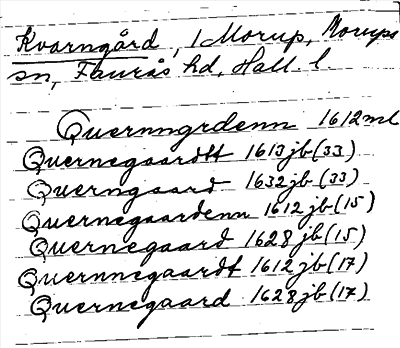 Kvarngård, 1 Morup, Morups
sn, Faurås hd, Hall. l
Quernngrdenn 1612 ml
Quernegaardtt 1613 jb (33)
Querngaard 1632 jb (33)
Quernegaardenn 1612 jb (15)
Quernegaard 1628 jb (15)
Quernnegaardt 1612 jb (17)
Quernegaard 1628 jb (17)